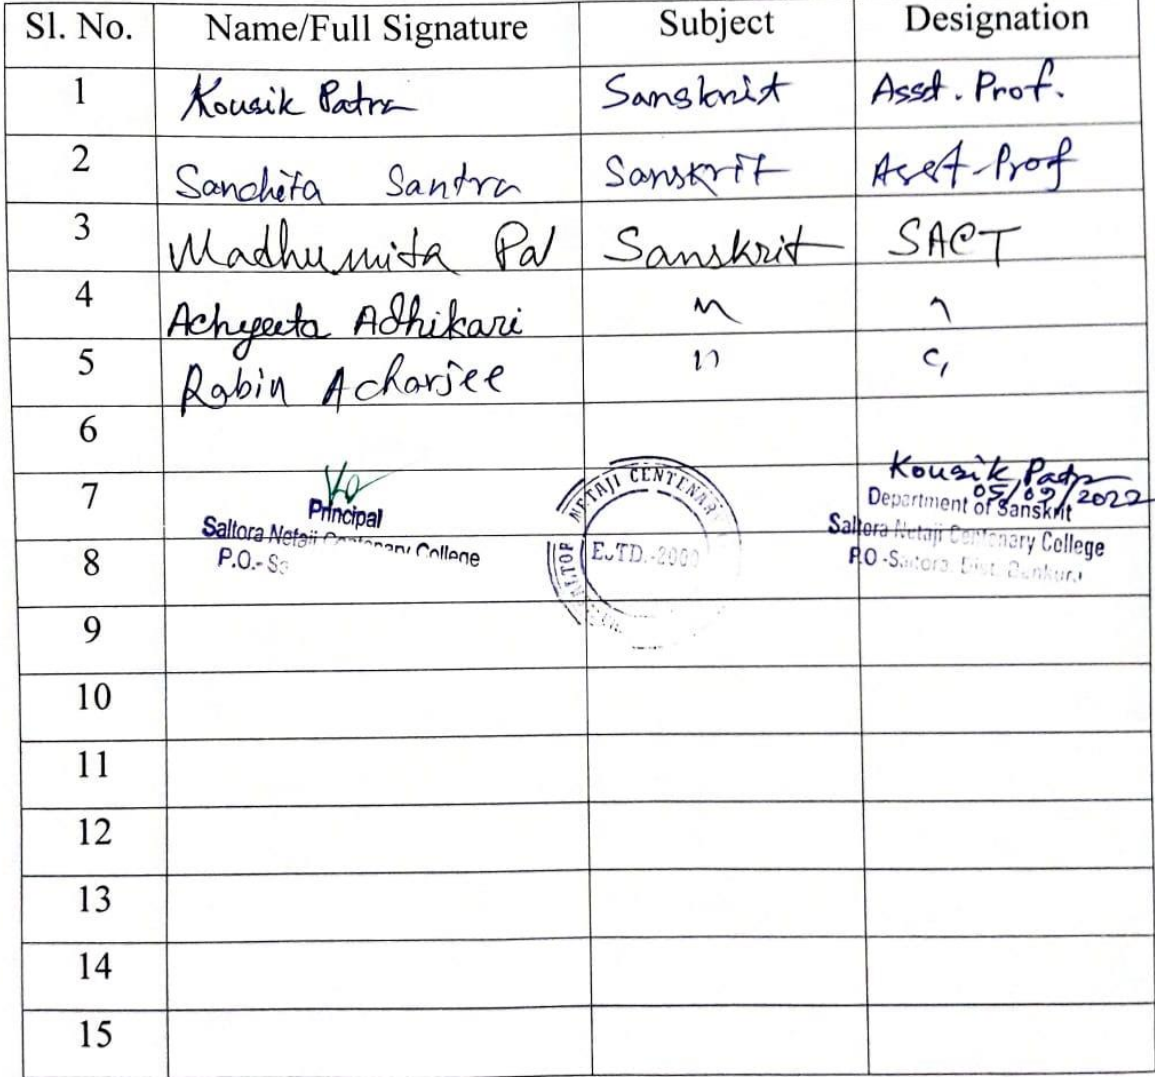 Sl. No. Name/Full Signature Subject Designation
1 Kousik Patra Sanskrit Asst. Prof.
2 Sanchita Santra Sanskrit Asst. Prof
3 Madhumita Pal Sanskrit SACT
4 Achyeeta Adhikari
5 Rabin Acharjee
6
7
Principal
Saltora Netaji Centenary College
P.O.-
NETAJI CENTENARY
ESTD.-2000
Kousik Patra
05/09/2022
Department of Sanskrit
Saltora Netaji Centenary College
P.O-Saltora, Dist. Bankura
8
9
10
11
12
13
14
15